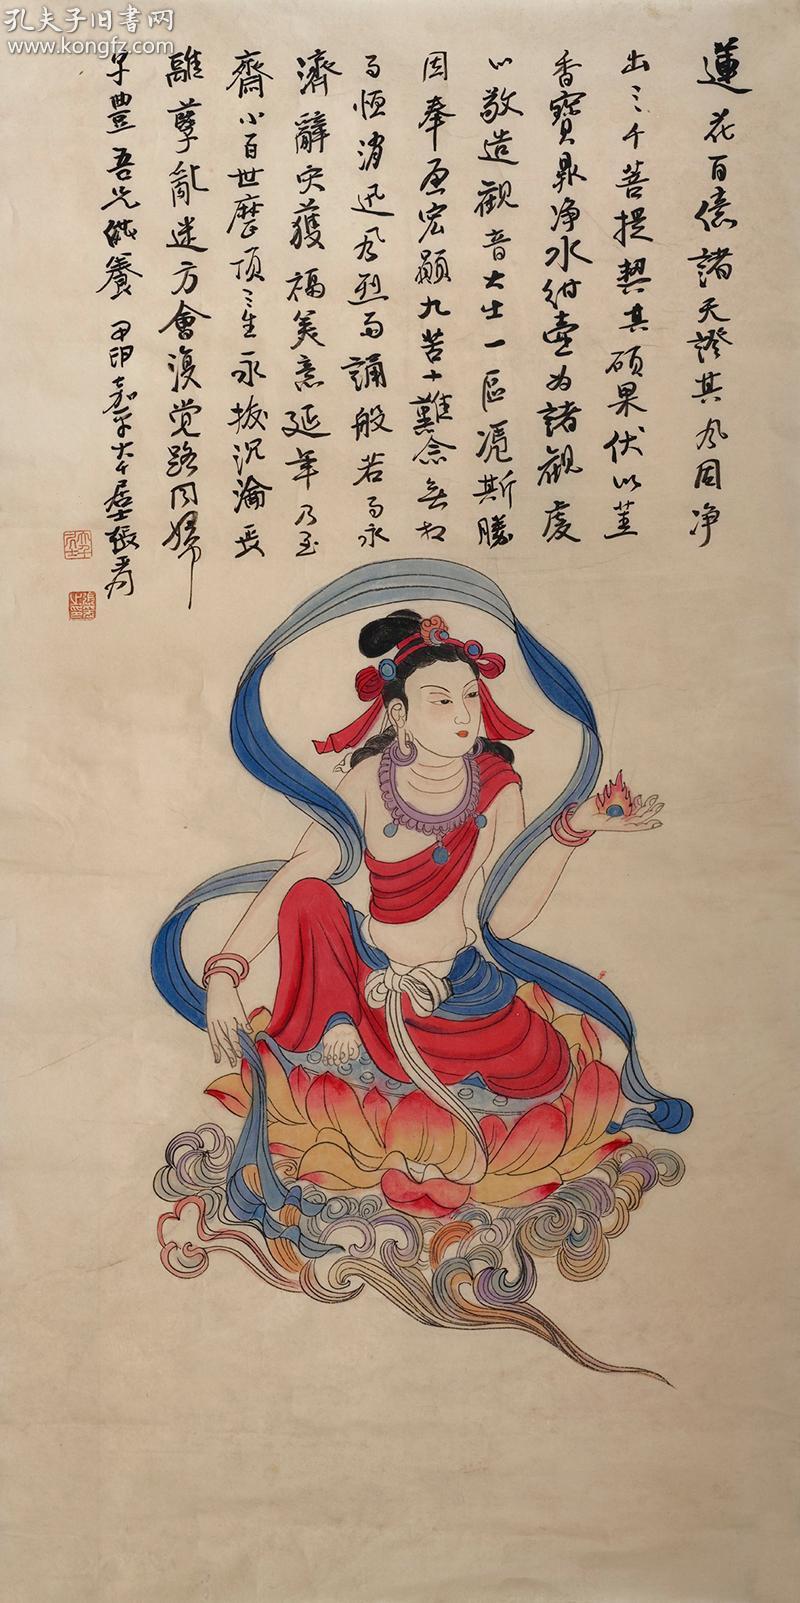 孔夫子旧书网
www.kongfz.com
蓮花百億諸天證其夙因淨
出三千菩提契其碩果伏以堇
香寶鼎净水紺壺为諸觀虔
心敬造觀音大士一區憑斯勝
因奉爲宏願九苦十難念無打
而恒消迅風烈雨誦般若而永
濟辭灾獲福美意延年乃至
齋心百世歷頂三生永拔沉淪長
離孽亂迷方會復觉路同歸
子豊吾兄供養 甲申嘉平大千居士張爰